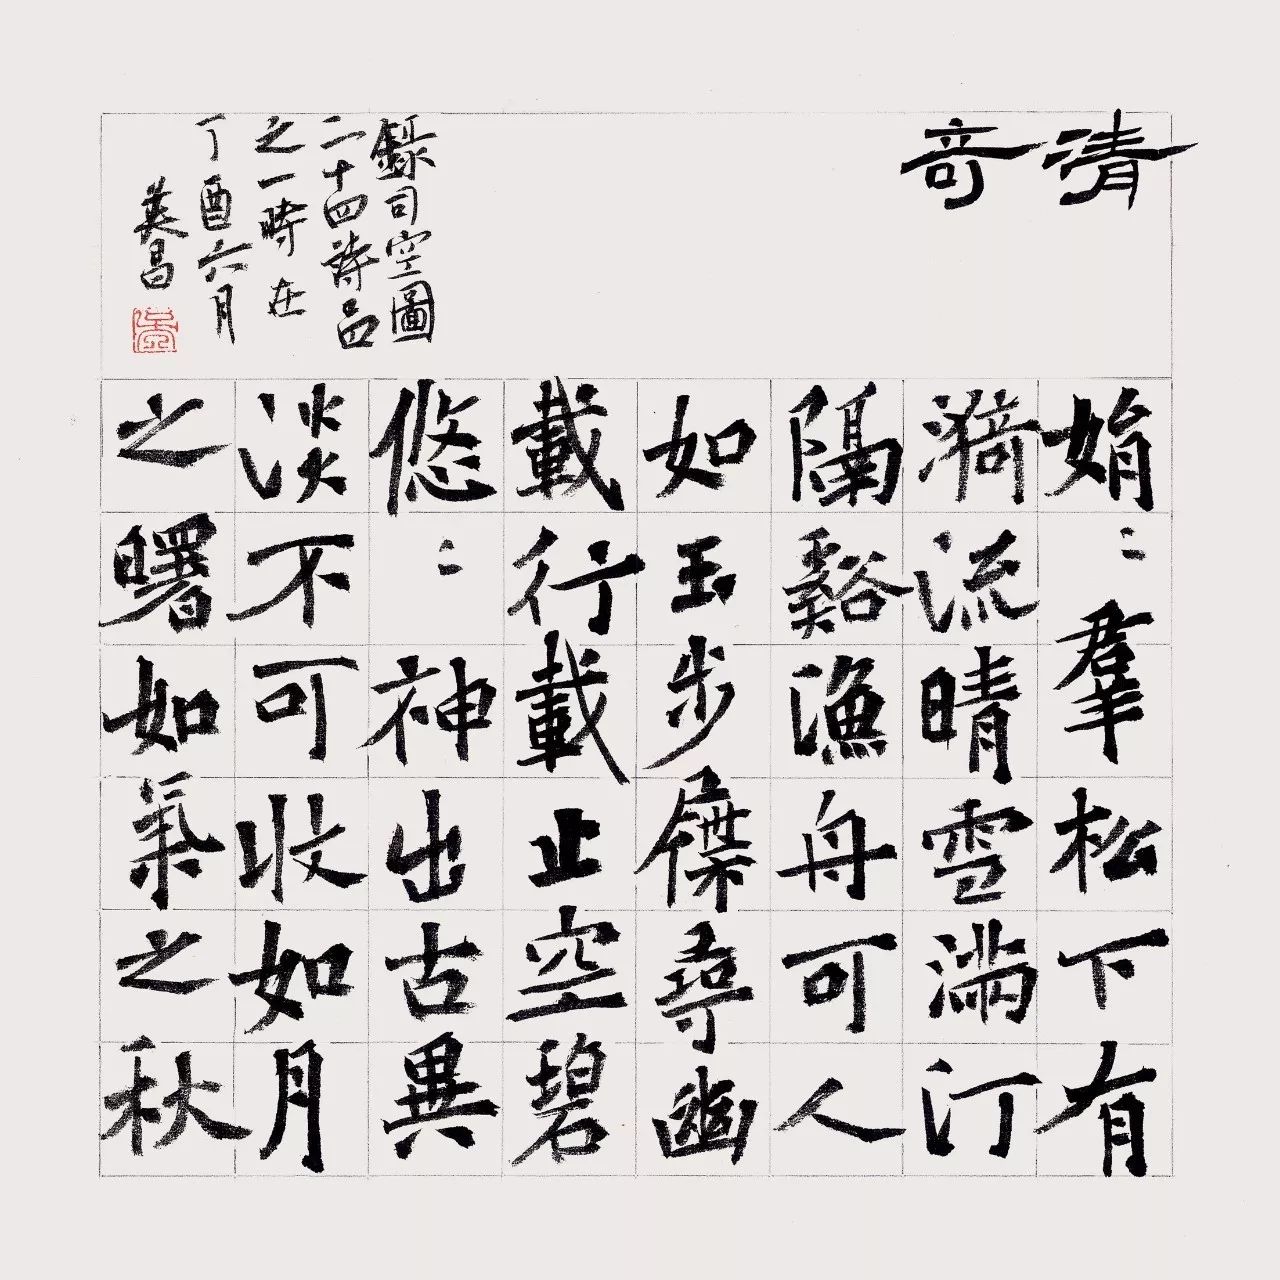 清奇
娟〻羣松下有
漪流晴雪滿汀
隔谿漁舟可人
如玉步屧尋幽
載行載止空碧
悠〻神出古異
淡不可收如月
之曙如氣之秋
錄司空圖
二十四詩品
之一時在
丁酉六月
昌